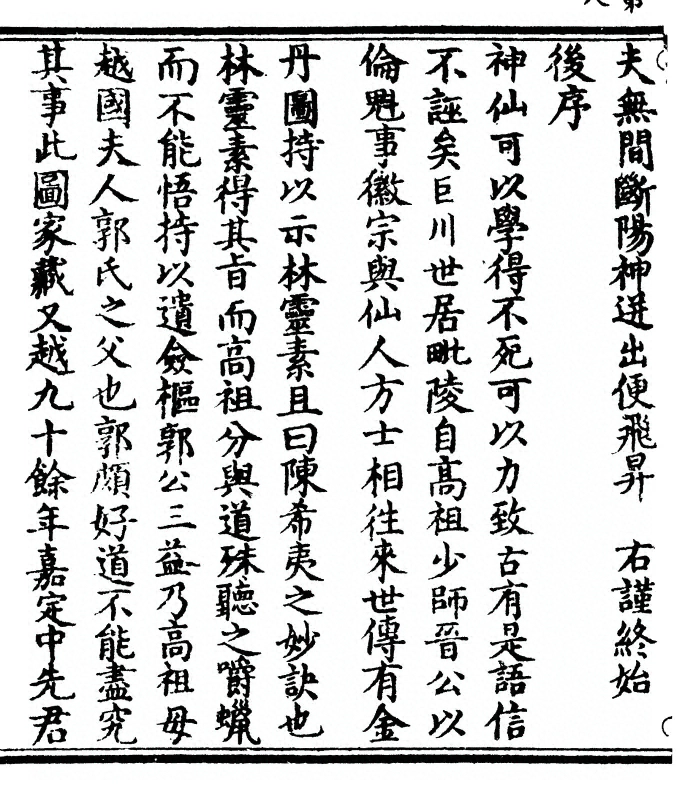 夫無間斷陽神迸出便飛昇　右謹終始
後序
神仙可以學得不死可以力致古有是語信
不誣矣巨川世居毗陵自高祖少師晉公以
倫魁事徽宗與仙人方士相往來世傳有金
丹圖持以示林靈素且曰陳希夷之妙訣也
林靈素得其旨而高祖分與道殊聽之嚼蠟
而不能悟持以遺僉樞郭公三益乃高祖母
越國夫人郭氏之父也郭頗好道不能盡究
其事此圖家藏又越九十餘年嘉定中先君